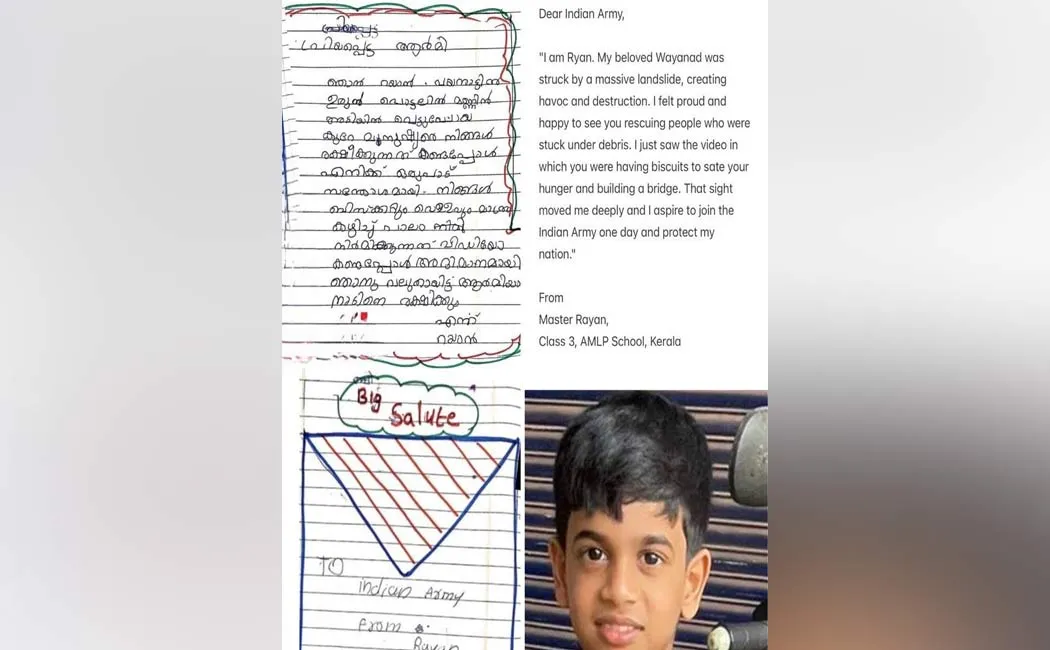 പ്രിയപ്പെട്ട ആർമി
ഞാൻ റയാൻ . വയനാട്ടിൽ
ഉരുൾ പൊട്ടലിൽ മണ്ണിൽ
അടിയിൽ പെട്ടുപോയ
കുറേ മനുഷ്യരെ നിങ്ങൾ
രക്ഷിക്കുന്നത് കണ്ടപ്പോൾ
എനിക്ക് ഒരുപാട്
സന്തോഷമായി. നിങ്ങൾ
ബിസ്ക്കറ്റും വെള്ളവും മാത്രം
കഴിച്ച് പാലം
നിർമിക്കുന്നത് വിഡിയോ
കണ്ടപ്പോൾ അഭിമാനമായി
ഞാനും വലുതായിട്ട്
നാടിനെ രക്ഷിക്കും
എന്ന്
റയാൻ
Dear Indian Army,
"I am Ryan. My beloved Wayanad was
struck by a massive landslide, creating
havoc and destruction. I felt proud and
happy to see you rescuing people who were
stuck under debris. I just saw the video in
which you were having biscuits to sate your
hunger and building a bridge. That sight
moved me deeply and I aspire to join the
Indian Army one day and protect my
nation."
From
Master Rayan,
Class 3, AMLP School, Kerala
Big
Salute
TO
indian Army
From
Rayan